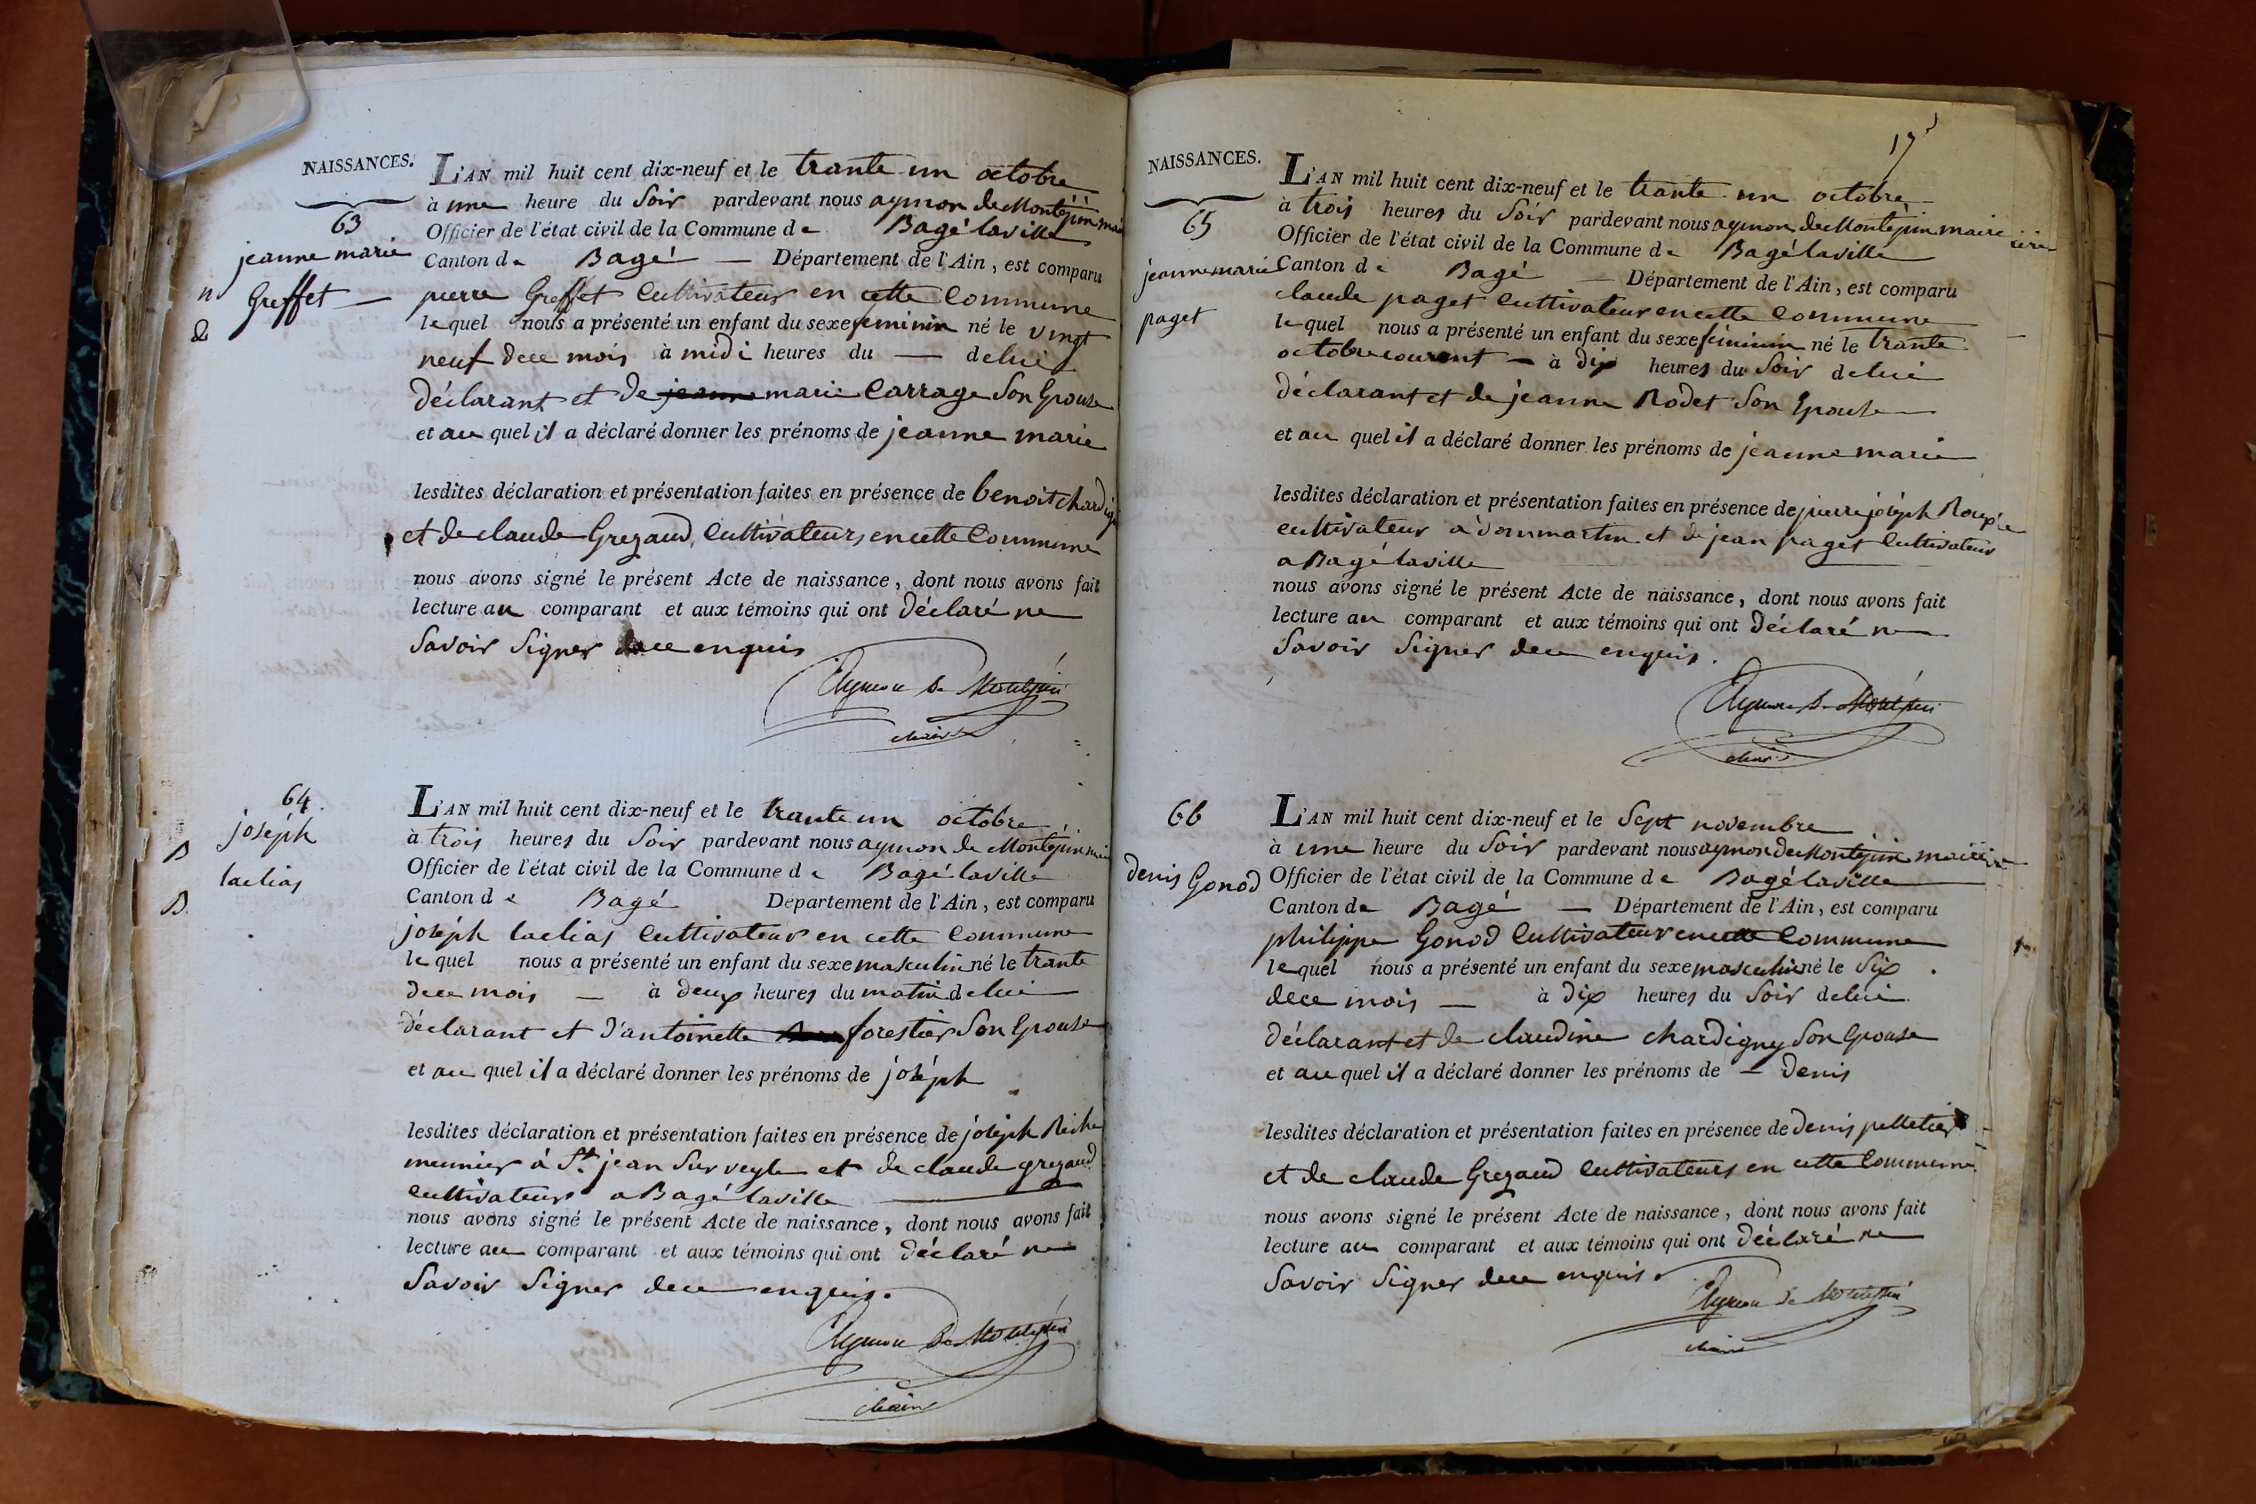 NAISSANCES.
63
jeanne marie
Greffet —
L'AN mil huit cent dix-neuf et le trante un octobre
à une heure du Soir pardevant nous aymon de Montépin
Officier de l'état civil de la Commune de Bagé laville
Canton de Bagé — Département de l'Ain, est comparu
pierre Greffet Cultivateur en cette Commune
lequel nous a présenté un enfant du sexe feminin né le vingt
neuf dece mois à midi heures du — delui
déclarant et de jeanne marie Carrage Son Epouse
et au quel il a déclaré donner les prénoms de jeanne marie
lesdites déclaration et présentation faites en présence de benoit
et de claude Gregaud, Cultivateurs en cette Commune
nous avons signé le présent Acte de naissance, dont nous avons fait
lecture au comparant et aux témoins qui ont déclaré ne
Savoir Signer dece enquis
Aymon De Montépin
Maire
64.
joséph
laclias
L'AN mil huit cent dix-neuf et le trante un octobre
à trois heures du Soir pardevant nous aymon de Montépin
Officier de l'état civil de la Commune de Bagé laville
Canton de Bagé Département de l'Ain, est comparu
joséph laclias Cultivateur en cette Commune
lequel nous a présenté un enfant du sexe masculin né le trante
dece mois — à deux heures du matin delui
déclarant et d'antoinette forestier Son Epouse
et au quel il a déclaré donner les prénoms de joséph
lesdites déclaration et présentation faites en présence de joséph
meunier à St. jean Sur veyle et de claude gregaud
Cultivateurs a Bagé laville
nous avons signé le présent Acte de naissance, dont nous avons fait
lecture au comparant et aux témoins qui ont déclaré ne
Savoir Signer dece enquis.
Aymon De Montépin
Maire
NAISSANCES.
65
jeanne marie
paget
L'AN mil huit cent dix-neuf et le trante un octobre
à trois heures du Soir pardevant nous aymon de Montépin maire
Officier de l'état civil de la Commune de Bagé laville
Canton de Bagé — Département de l'Ain, est comparu
claude paget Cultivateur en cette Commune
lequel nous a présenté un enfant du sexe féminin né le trante
octobre courent — à dix heures du Soir delui
déclarant et de jeanne Rodet Son Epouse
et au quel il a déclaré donner les prénoms de jeanne marie
lesdites déclaration et présentation faites en présence de pierre joséph
Cultivateur a dommartin et de jean paget Cultivateur
a Bagé laville
nous avons signé le présent Acte de naissance, dont nous avons fait
lecture au comparant et aux témoins qui ont déclaré ne
Savoir Signer dece enquis.
Aymon De Montépin
Maire
66
denis Gonod
L'AN mil huit cent dix-neuf et le Sept novembre
à une heure du Soir pardevant nous aymon de Montépin maire
Officier de l'état civil de la Commune de Bagé laville
Canton de Bagé — Département de l'Ain, est comparu
philippe Gonod Cultivateur en cette Commune
lequel nous a présenté un enfant du sexe masculin né le Six
dece mois — à dix heures du Soir delui
déclarant et de claudine chardigny Son Epouse
et au quel il a déclaré donner les prénoms de — denis
lesdites déclaration et présentation faites en présence de denis pelletier
et de claude Gregaud Cultivateurs en cette Commune
nous avons signé le présent Acte de naissance, dont nous avons fait
lecture au comparant et aux témoins qui ont déclaré ne
Savoir Signer dece enquis.
Aymon de Montépin
Maire